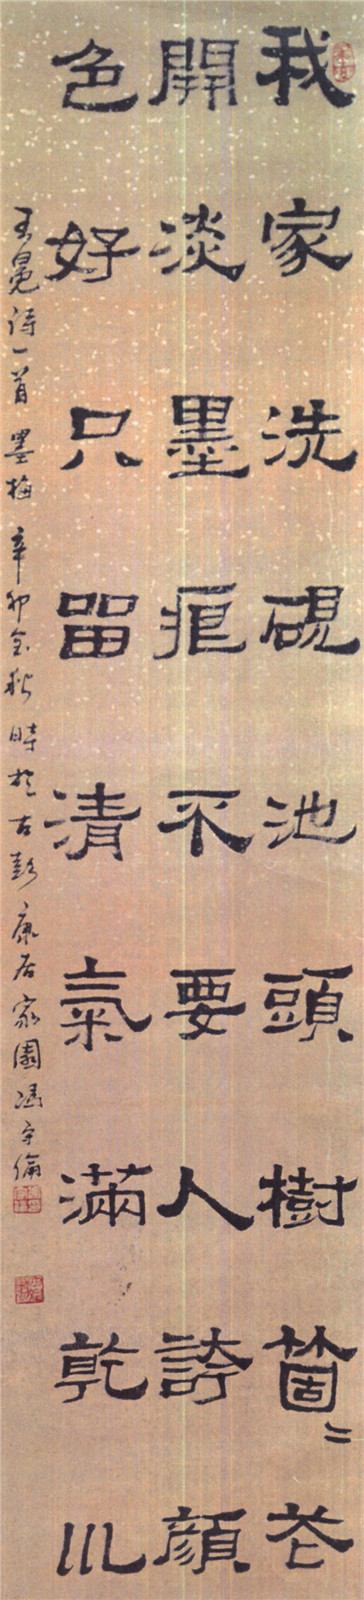 我家洗硯池頭樹箇〻花
開淡墨痕不要人誇顏
色好只留清氣滿乾川
王冕詩一首墨梅辛卯金秋時於古彭康居家園馮宇倫